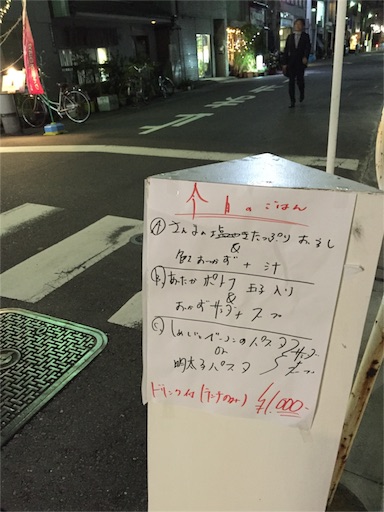 今日のごはん
Ⓐ さんまの塩焼き たっぷりおろし
&
おかず + 汁
Ⓑ あったかポトフ 玉子入り
&
おかずサラダ + スープ
Ⓒ しめじとベーコンのパスタ サラダ
or スープ
明太子パスタ
ドリンク付(ランチのみ) ¥1,000-